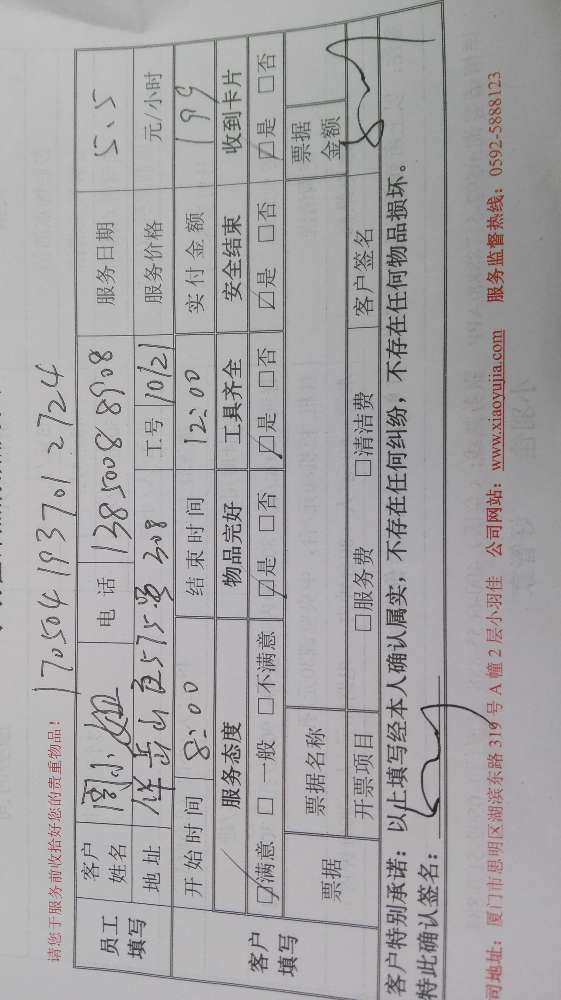 请您于服务前收拾好您的贵重物品!
1705041937012724
员工填写 客户姓名 周小姐 电话 13850088908 服务日期 5.5
地址 岳山路575号308 工号 10121 服务价格 元/小时
开始时间 8:00 结束时间 12:00 实付金额 199
客户填写 服务态度 物品完好 工具齐全 安全结束 收到卡片
☑满意 □一般 □不满意 ☑是 □否 ☑是 □否 ☑是 □否 ☑是 □否
票据 票据名称 票据金额
开票项目 □服务费 □清洁费 客户签名
客户特别承诺:以上填写经本人确认属实,不存在任何纠纷,不存在任何物品损坏。
特此确认签名:
司地址:厦门市思明区湖滨东路319号A幢2层小羽佳 公司网站:www.xiaoyujia.com 服务监督热线:0592-5888123